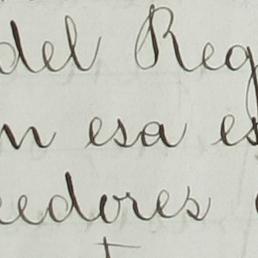 del Reg
n esa es
eedores